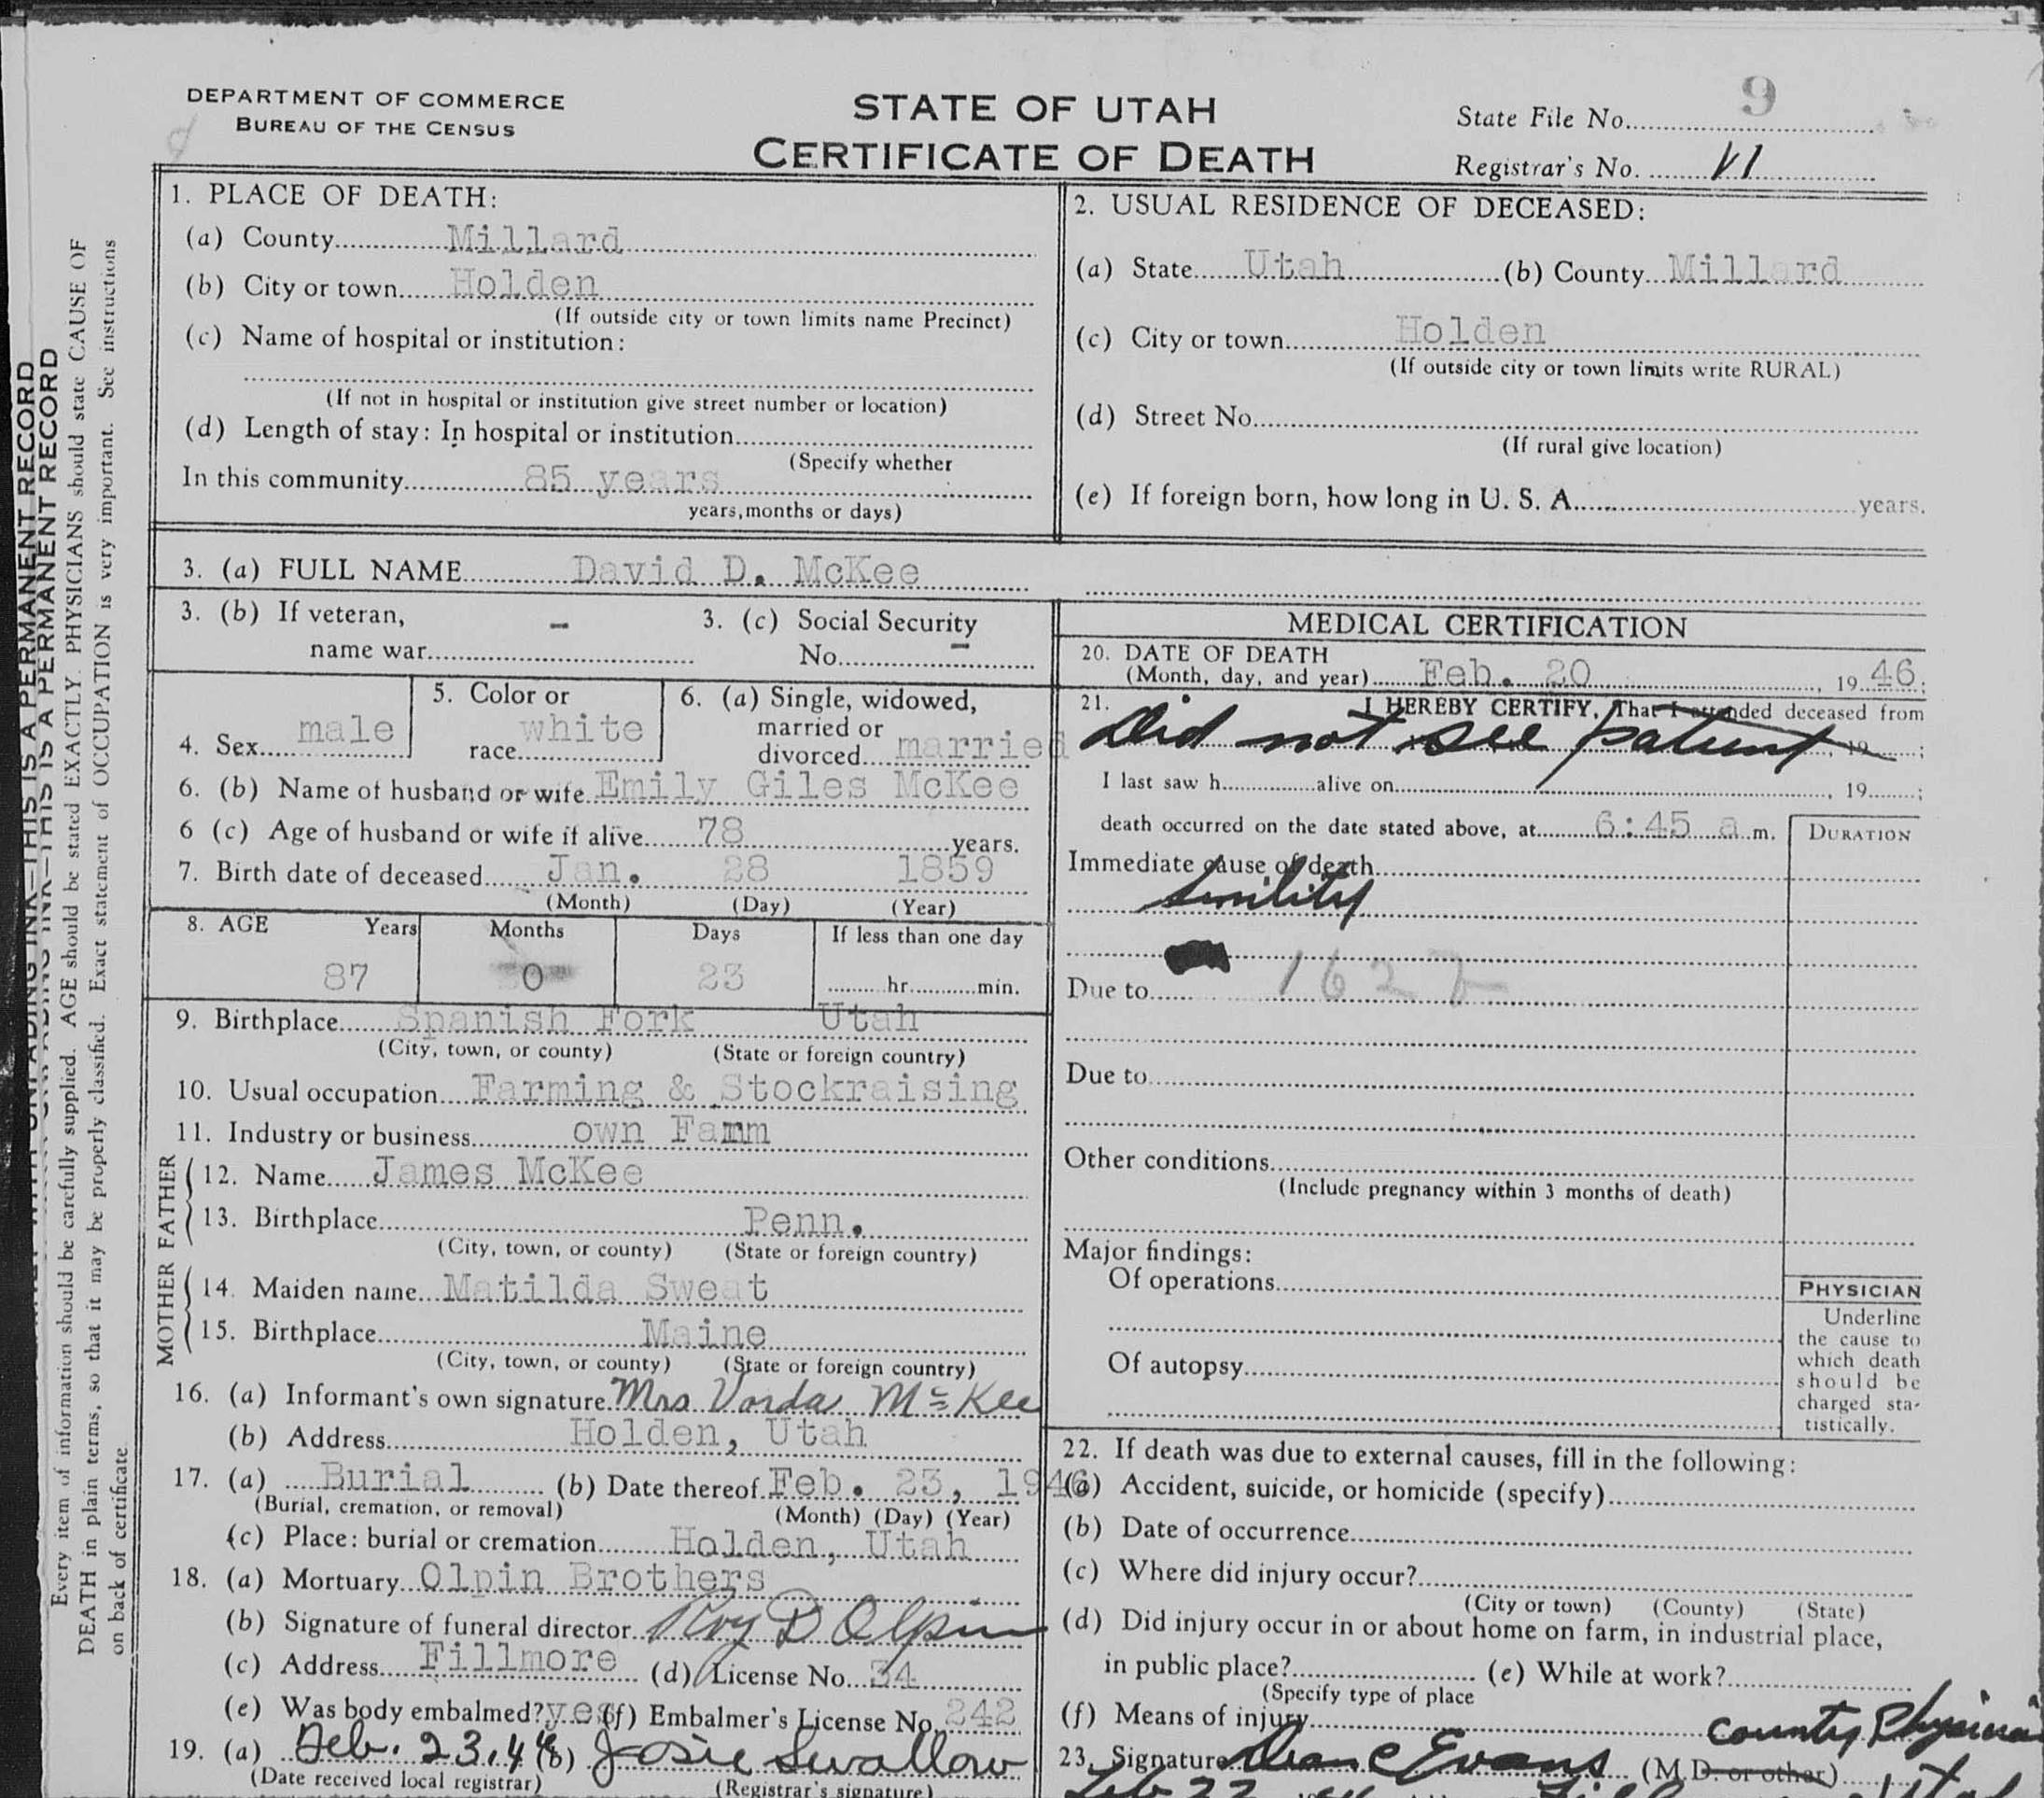 DEPARTMENT OF COMMERCE
BUREAU OF THE CENSUS
STATE OF UTAH
CERTIFICATE OF DEATH
State File No. 9
Registrar's No.
1. PLACE OF DEATH:
(a) County Millard
(b) City or town Holden
(If outside city or town limits name Precinct)
(c) Name of hospital or institution:
(If not in hospital or institution give street number or location)
(d) Length of stay: In hospital or institution
(Specify whether
In this community 85 years
years, months or days)
2. USUAL RESIDENCE OF DECEASED:
(a) State Utah (b) County Millard
(c) City or town Holden
(If outside city or town limits write RURAL)
(d) Street No.
(If rural give location)
(e) If foreign born, how long in U. S. A. years.
3. (a) FULL NAME David D. McKee
3. (b) If veteran, -
name war
3. (c) Social Security
No. -
4. Sex male
5. Color or
race white
6. (a) Single, widowed,
married or
divorced married
6. (b) Name of husband or wife Emily Giles McKee
6 (c) Age of husband or wife if alive 78 years.
7. Birth date of deceased Jan. 28 1859
(Month) (Day) (Year)
8. AGE Years Months Days If less than one day
87 0 23 hr. min.
9. Birthplace Spanish Fork Utah
(City, town, or county) (State or foreign country)
10. Usual occupation Farming & Stockraising
11. Industry or business own Farm
FATHER
12. Name James McKee
13. Birthplace Penn.
(City, town, or county) (State or foreign country)
MOTHER
14. Maiden name Matilda Sweat
15. Birthplace Maine
(City, town, or county) (State or foreign country)
16. (a) Informant's own signature Mrs Varda McKee
(b) Address Holden, Utah
17. (a) Burial (b) Date thereof Feb. 23, 1946
(Burial, cremation, or removal) (Month) (Day) (Year)
(c) Place: burial or cremation Holden, Utah
18. (a) Mortuary Olpin Brothers
(b) Signature of funeral director Roy D Olpin
(c) Address Fillmore (d) License No. 34
(e) Was body embalmed? yes (f) Embalmer's License No. 242
19. (a) Feb. 23, 46 (b) Josie Swallow
(Date received local registrar) (Registrar's signature)
MEDICAL CERTIFICATION
20. DATE OF DEATH
(Month, day, and year) Feb. 20, 19 46;
21. I HEREBY CERTIFY, That I attended deceased from
Did not see patient, 19 ;
I last saw h alive on , 19 ;
death occurred on the date stated above, at 6:45 a m.
DURATION
Immediate cause of death
Senility
Due to 162
Due to
Other conditions
(Include pregnancy within 3 months of death)
Major findings:
Of operations
Of autopsy
PHYSICIAN
Underline
the cause to
which death
should be
charged sta-
tistically.
22. If death was due to external causes, fill in the following:
(a) Accident, suicide, or homicide (specify)
(b) Date of occurrence
(c) Where did injury occur?
(City or town) (County) (State)
(d) Did injury occur in or about home on farm, in industrial place,
in public place? (e) While at work?
(Specify type of place
(f) Means of injury
County Physician
23. Signature Dean C Evans (M.D. or other)
Feb 22
THIS IS A PERMANENT RECORD
THIS IS A PERMANENT RECORD
Every item of information should be carefully supplied. AGE should be stated EXACTLY. PHYSICIANS should state CAUSE OF
DEATH in plain terms, so that it may be properly classified. Exact statement of OCCUPATION is very important. See instructions
on back of certificate.